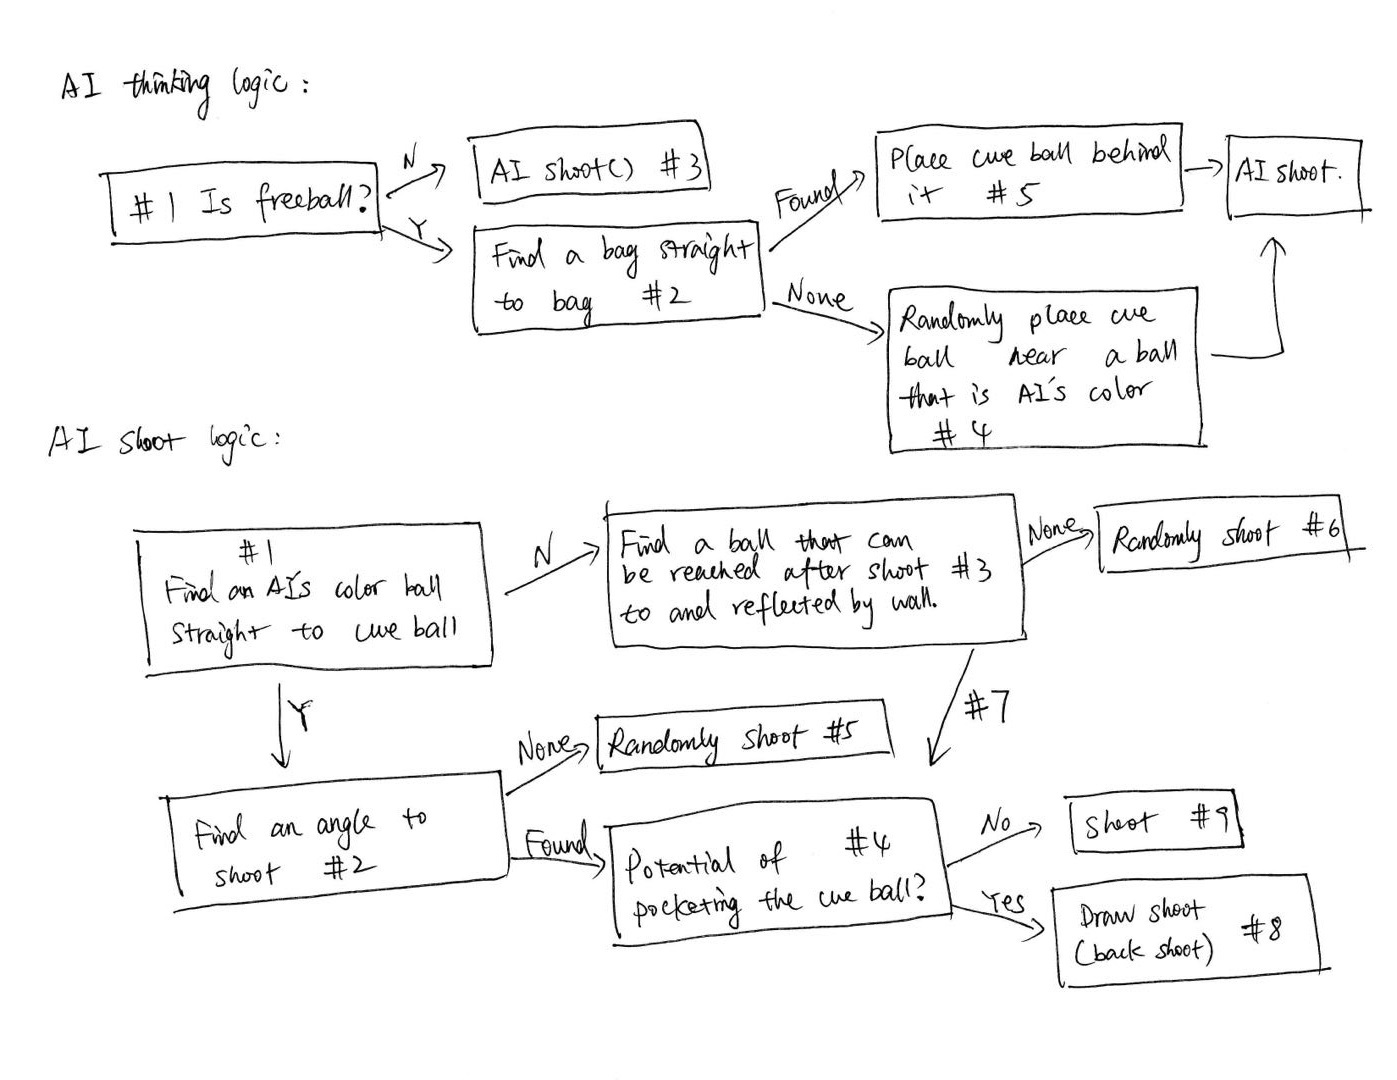 AI thinking logic :
#1 Is freeball?
N
Y
AI shoot() #3
Find a bag straight
to bag #2
Found
None
Place cue ball behind
it #5
AI shoot.
Randomly place cue
ball near a ball
that is AI's color
#4
AI shoot logic :
#1
Find an AI's color ball
straight to cue ball
N
Y
Find a ball that can
be reached after shoot #3
to and reflected by wall.
None
Randomly shoot #6
#7
Find an angle to
shoot #2
None
Randomly shoot #5
Found
Potential of #4
pocketing the cue ball?
No
Shoot #9
Yes
Draw shoot
(back shoot) #8